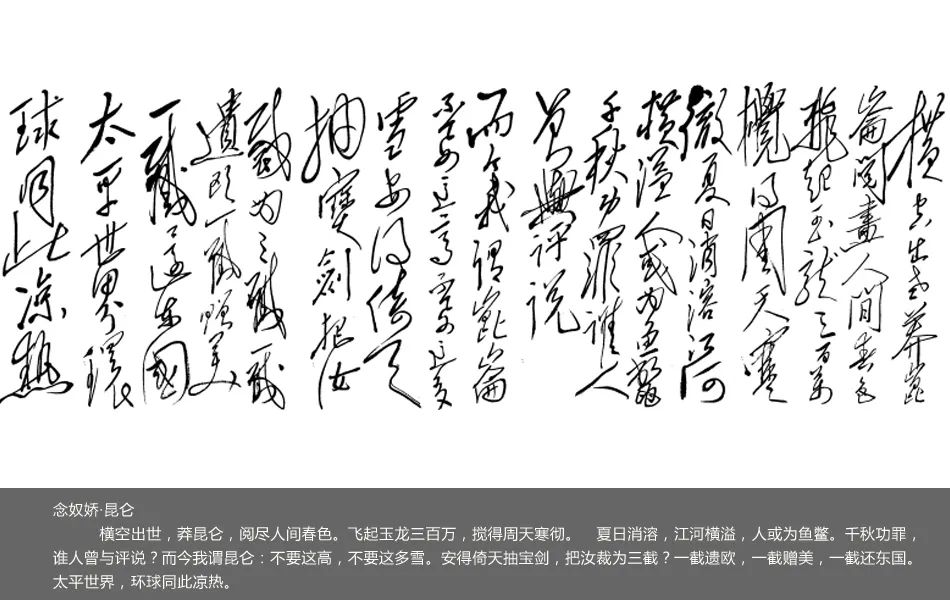 横空出世莽崑
崙閲盡人間春色
飛起玉龍三百萬
攪得周天寒
徹夏日消溶江河
横溢人或为魚鱉
千秋功罪誰人
曾與評説
而今我謂崑崙
不要這高不要這多
雪安得倚天
抽寶劍把汝
裁为三截一截
遺欧一截贈美
一截还東國
太平世界環
球同此凉熱
念奴娇·昆仑
横空出世，莽昆仑，阅尽人间春色。飞起玉龙三百万，搅得周天寒彻。　夏日消溶，江河横溢，人或为鱼鳖。千秋功罪，
谁人曾与评说？而今我谓昆仑：不要这高，不要这多雪。安得倚天抽宝剑，把汝裁为三截？一截遗欧，一截赠美，一截还东国。
太平世界，环球同此凉热。